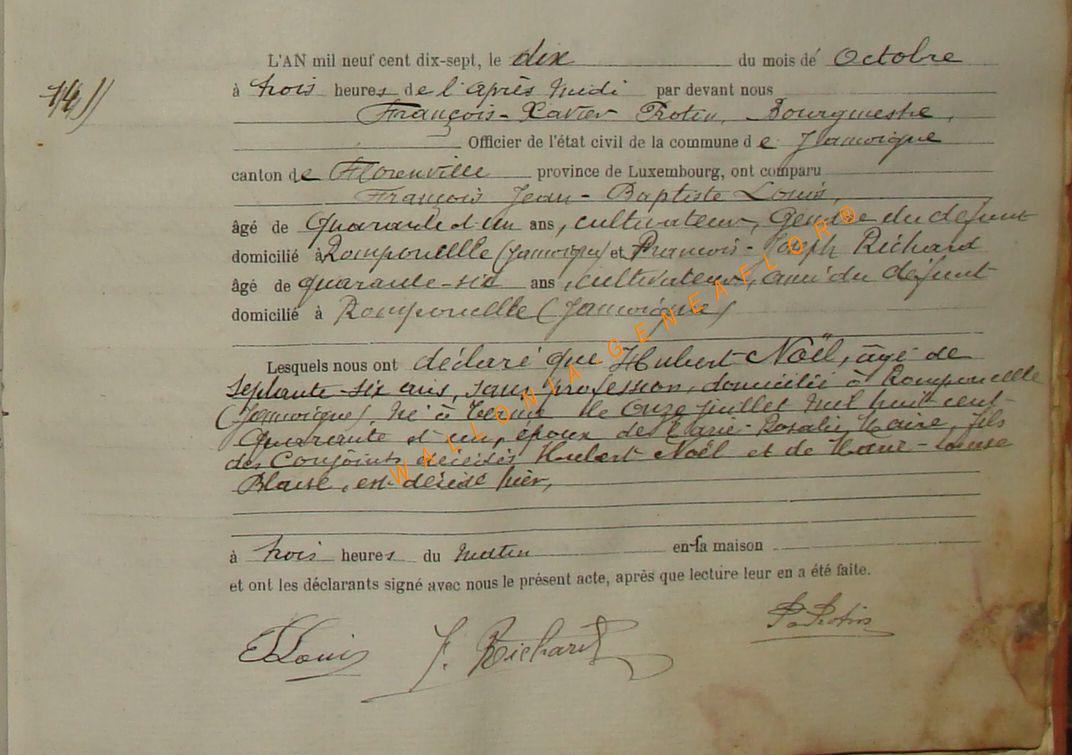 14))
L'AN mil neuf cent dix-sept, le dix du mois de Octobre
à trois heures de l'après midi par devant nous
François-Xavier Protin, Bourgmestre,
Officier de l'état civil de la commune de Jamoigne
canton de Florenville province de Luxembourg, ont comparu
François Jean-Baptiste Louis,
âgé de quarante et un ans, cultivateur, Gendre du défunt
domicilié à Romponcelle (Jamoigne) et François-Joseph Richard
âgé de quarante-six ans, cultivateur, ami du défunt
domicilié à Romponcelle (Jamoigne)
Lesquels nous ont déclaré que Hubert Noël, âgé de
septante-six ans, sans profession, domicilié à Romponcelle
(Jamoigne) né à Termes le onze juillet mil huit cent
quarante et un, époux de Marie-Rosalie, fils
des conjoints décédés Hubert Noël et de Marie-Louise
Blaise, est décédé hier,
à trois heures du matin en sa maison
et ont les déclarants signé avec nous le présent acte, après que lecture leur en a été faite.
Louis F. Richard Protin
WALLONIA-GENEAFLOR®